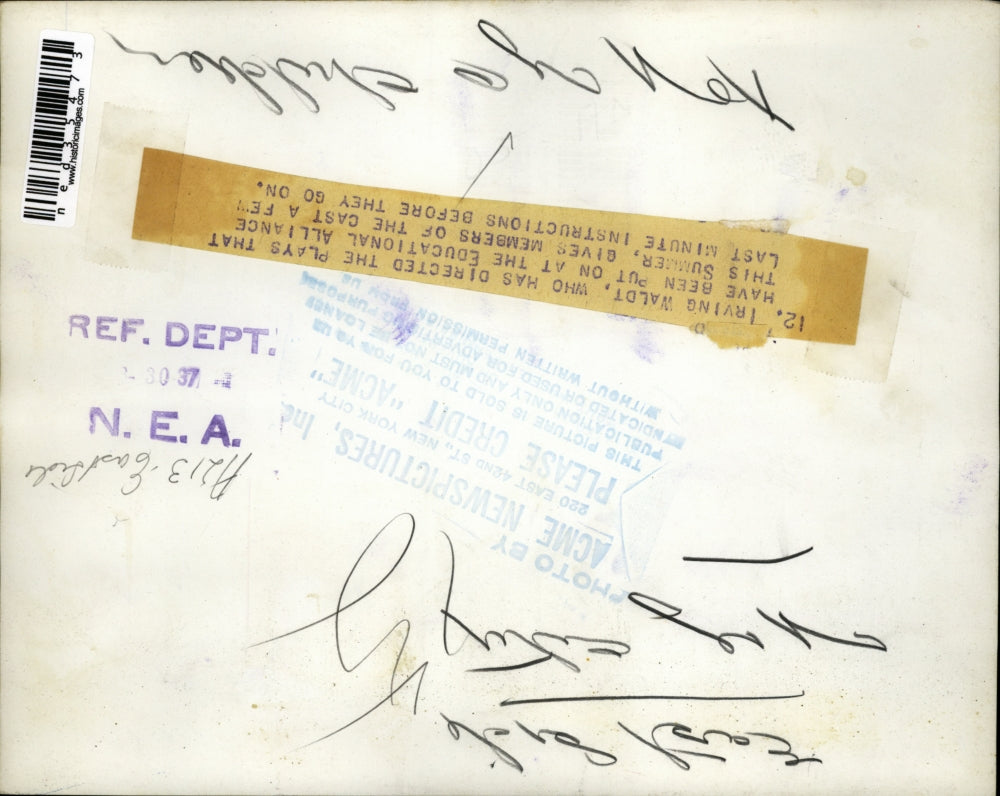 East Side
New York City
PHOTO BY
ACME NEWSPICTURES, Inc.
220 EAST 42ND ST., NEW YORK CITY
PLEASE CREDIT "ACME"
THIS PICTURE IS SOLD TO YOU FOR
PUBLICATION ONLY AND MUST NOT BE LOANED
USED FOR ADVERTISING PURPOSES
WITHOUT WRITTEN PERMISSION FROM US
12. IRVING WALDT, WHO HAS DIRECTED THE PLAYS THAT
HAVE BEEN PUT ON AT THE EDUCATIONAL ALLIANCE
THIS SUMMER, GIVES MEMBERS OF THE CAST A FEW
LAST MINUTE INSTRUCTIONS BEFORE THEY GO ON.
Children
REF. DEPT.
30 37
N. E. A.
East Side
ned35473
www.historicimages.com